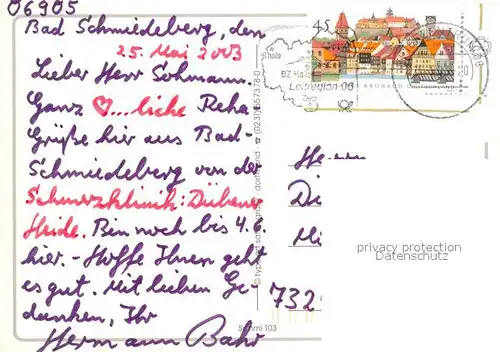 06905
Bad Schmiedeberg, den
25. Mai 2003
Lieber Herr Sohmann.
Ganz ♡...liche Reha
Grüße hier aus Bad-
Schmiedeberg von der
Schmerzklinik: Dübener
Heide. Bin noch bis 4.6.
hier. - Hoffe Ihnen geht
es gut. Mit lieben Ge-
danken, Ihr
Hermann Bahr
45
Thale
BZ Halle
Leitregion 06
KRONACH
He
Di
Mi
732
privacy protection
Datenschutz
Schmi 103